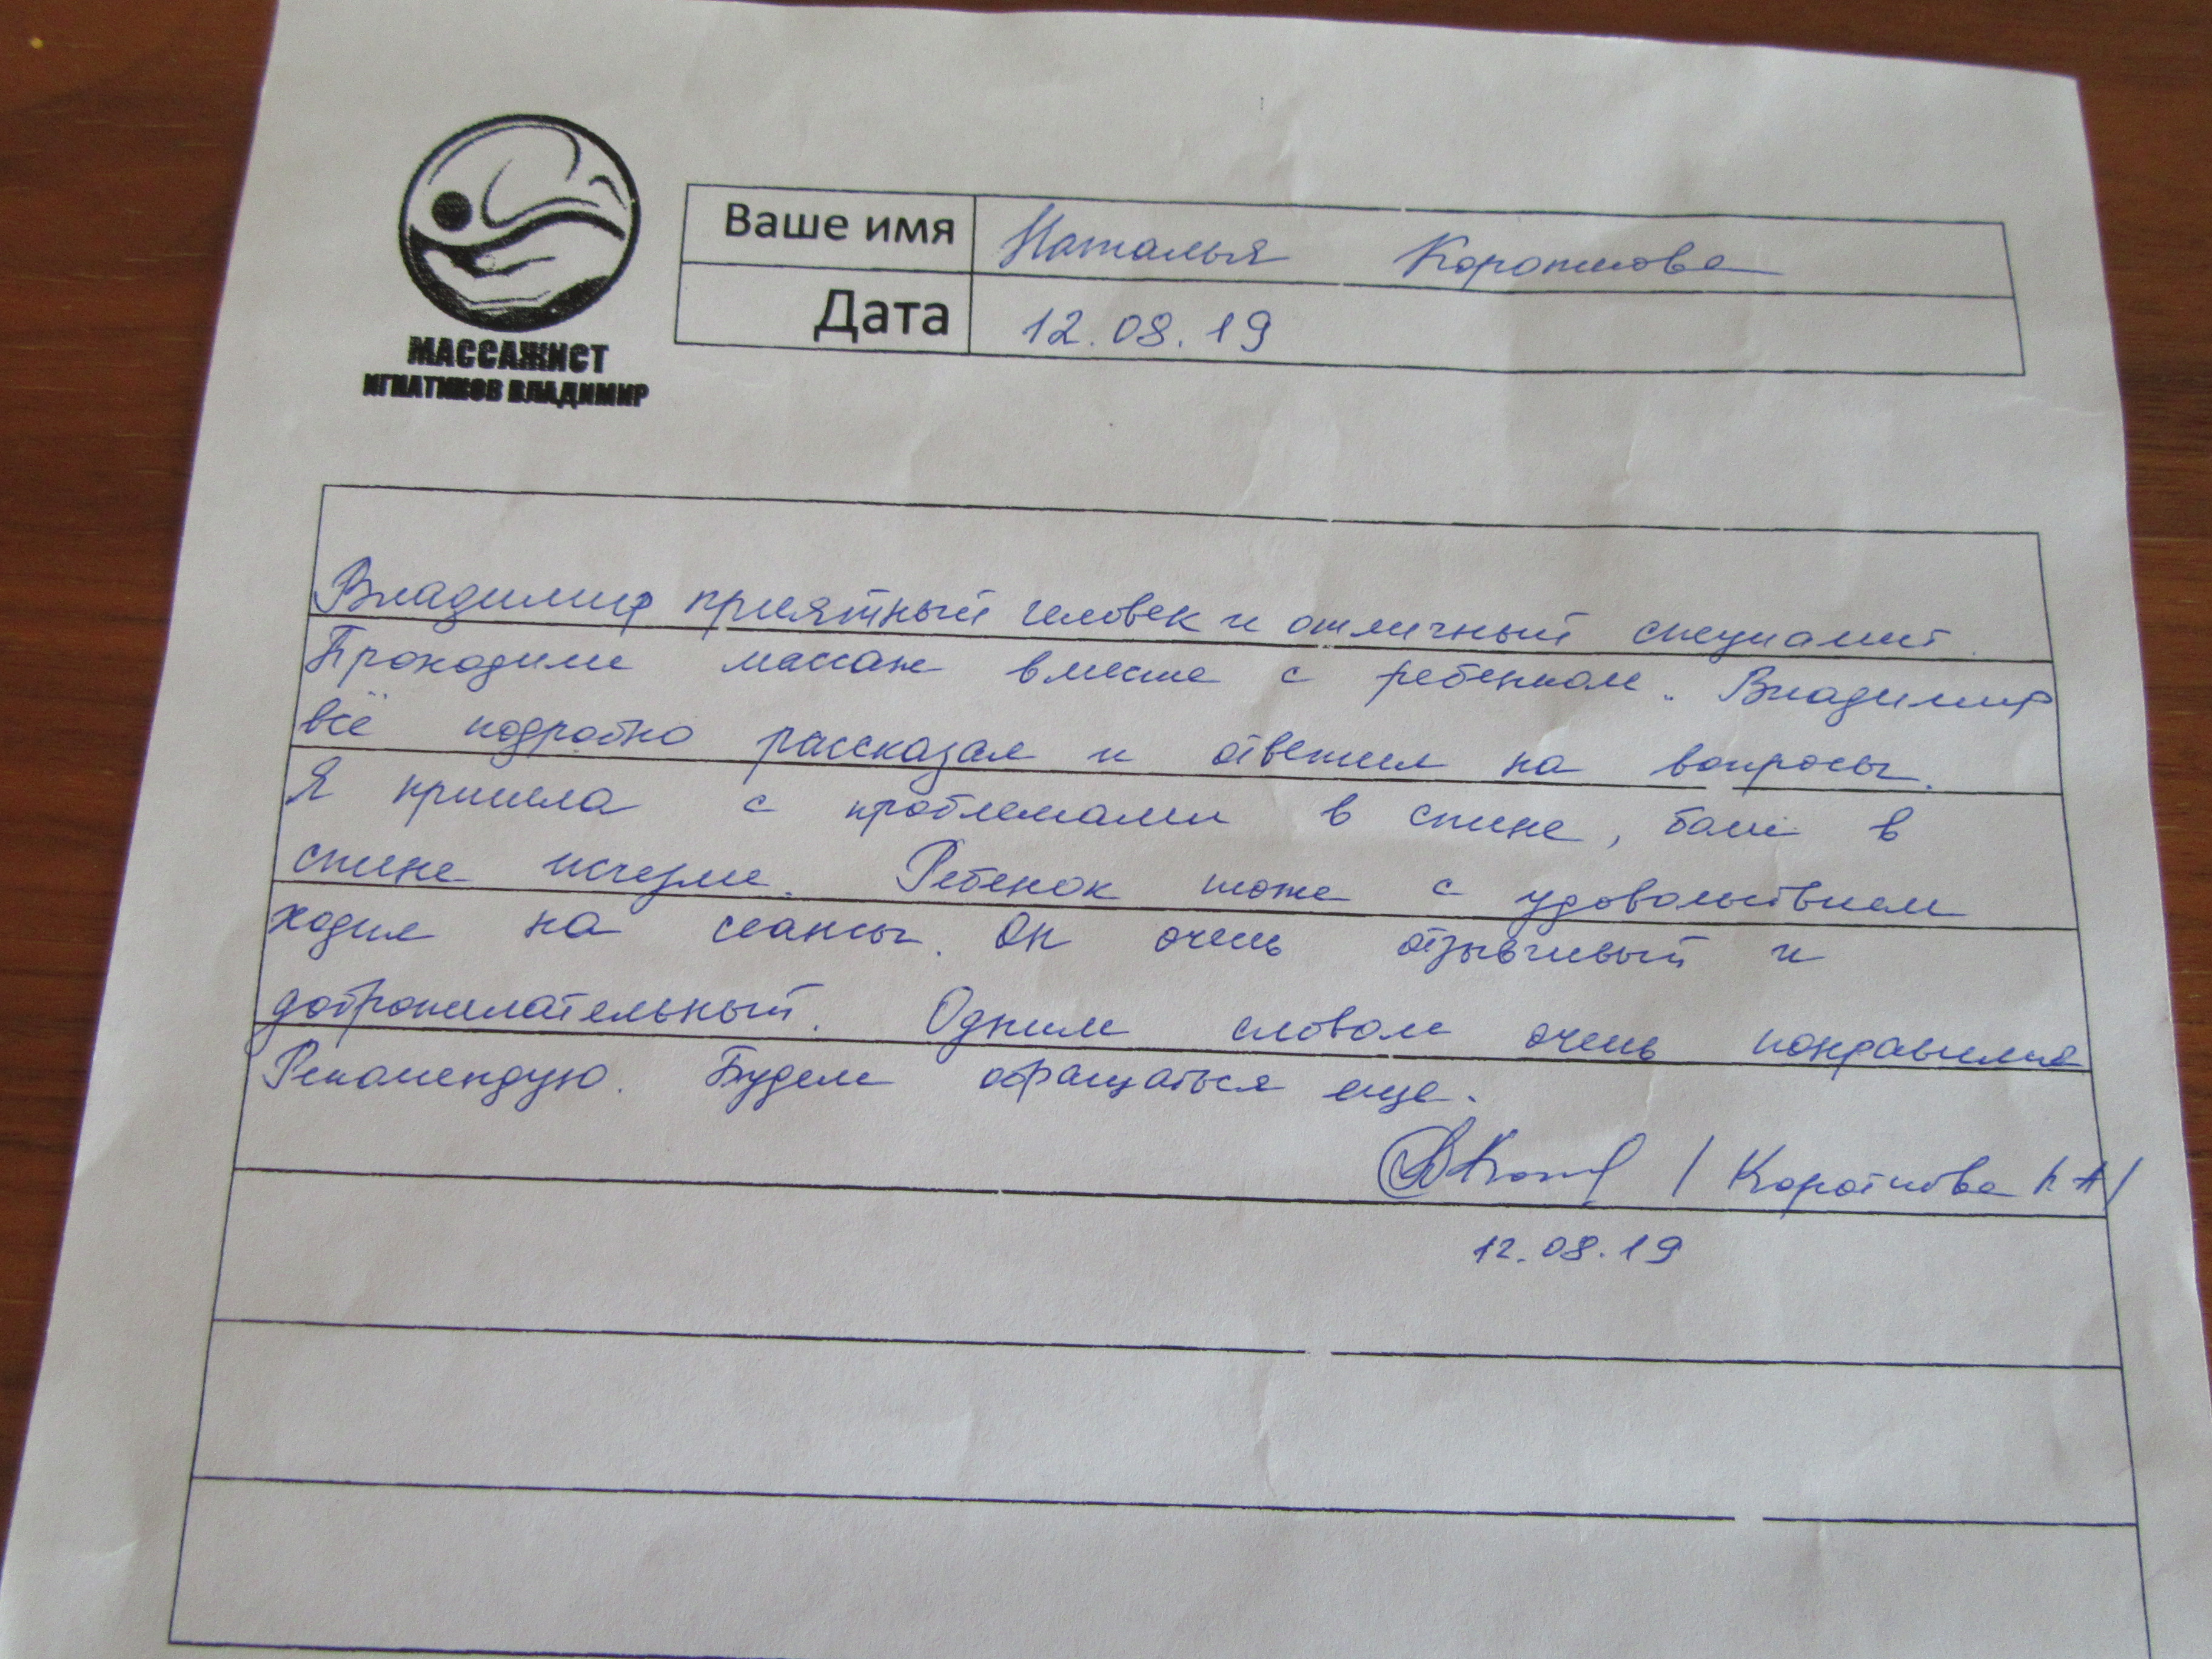 МАССАЖИСТ
ИГНАТИКОВ ВЛАДИМИР
Ваше имя Наталья Короткова
Дата 12.08.19
Владимир приятный человек и отличный специалист.
Проходили массаж вместе с ребенком. Владимир
всё подробно рассказал и ответил на вопросы.
Я пришла с проблемами в спине, боли в
спине исчезли. Ребенок тоже с удовольствием
ходил на сеансы. Он очень отзывчивый и
доброжилательный. Одним словом очень понравилось
Рекомендую. Будем обращаться еще.
/ Короткова /
12.08.19